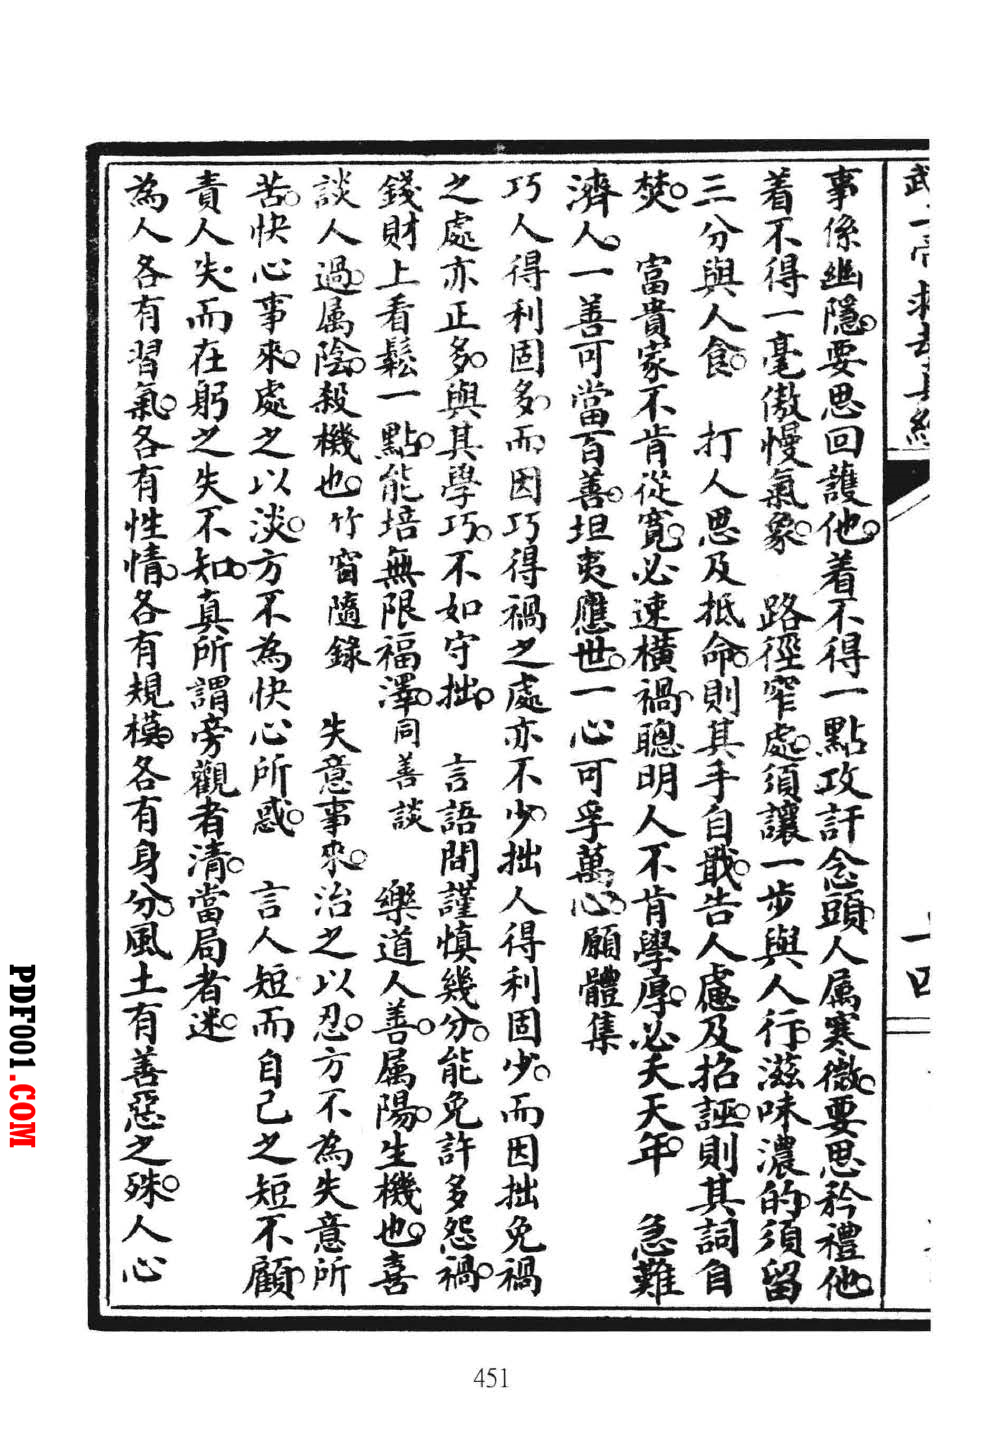 事係幽隱。要思回護他。着不得一點攻訐念頭。人屬寒微。要思矜禮他。
着不得一毫傲慢氣象。　路徑窄處。須讓一步與人行。滋味濃的。須留
三分與人食。　打人思及抵命。則其手自戢。告人慮及招誣。則其詞自
焚。　富貴家不肯從寬。必速橫禍。聰明人不肯學厚。必夭天年。　急難
濟人。一善可當百善。坦夷應世。一心可孚萬心。願體集
巧人得利固多。而因巧得禍之處亦不少。拙人得利固少。而因拙免禍
之處亦正多。與其學巧。不如守拙。　言語間謹慎幾分。能免許多怨禍。
錢財上看鬆一點。能培無限福澤。同善談　樂道人善。屬陽。生機也。喜
談人過。屬陰。殺機也。竹窗隨錄　失意事來。治之以忍。方不為失意所
苦。快心事來。處之以淡。方不為快心所惑。　言人短而自己之短不顧。
責人失。而在躬之失不知。真所謂旁觀者清。當局者迷。
為人各有習氣。各有性情。各有規模。各有身分。風土有善惡之殊。人心
十四
451
PDF001.COM